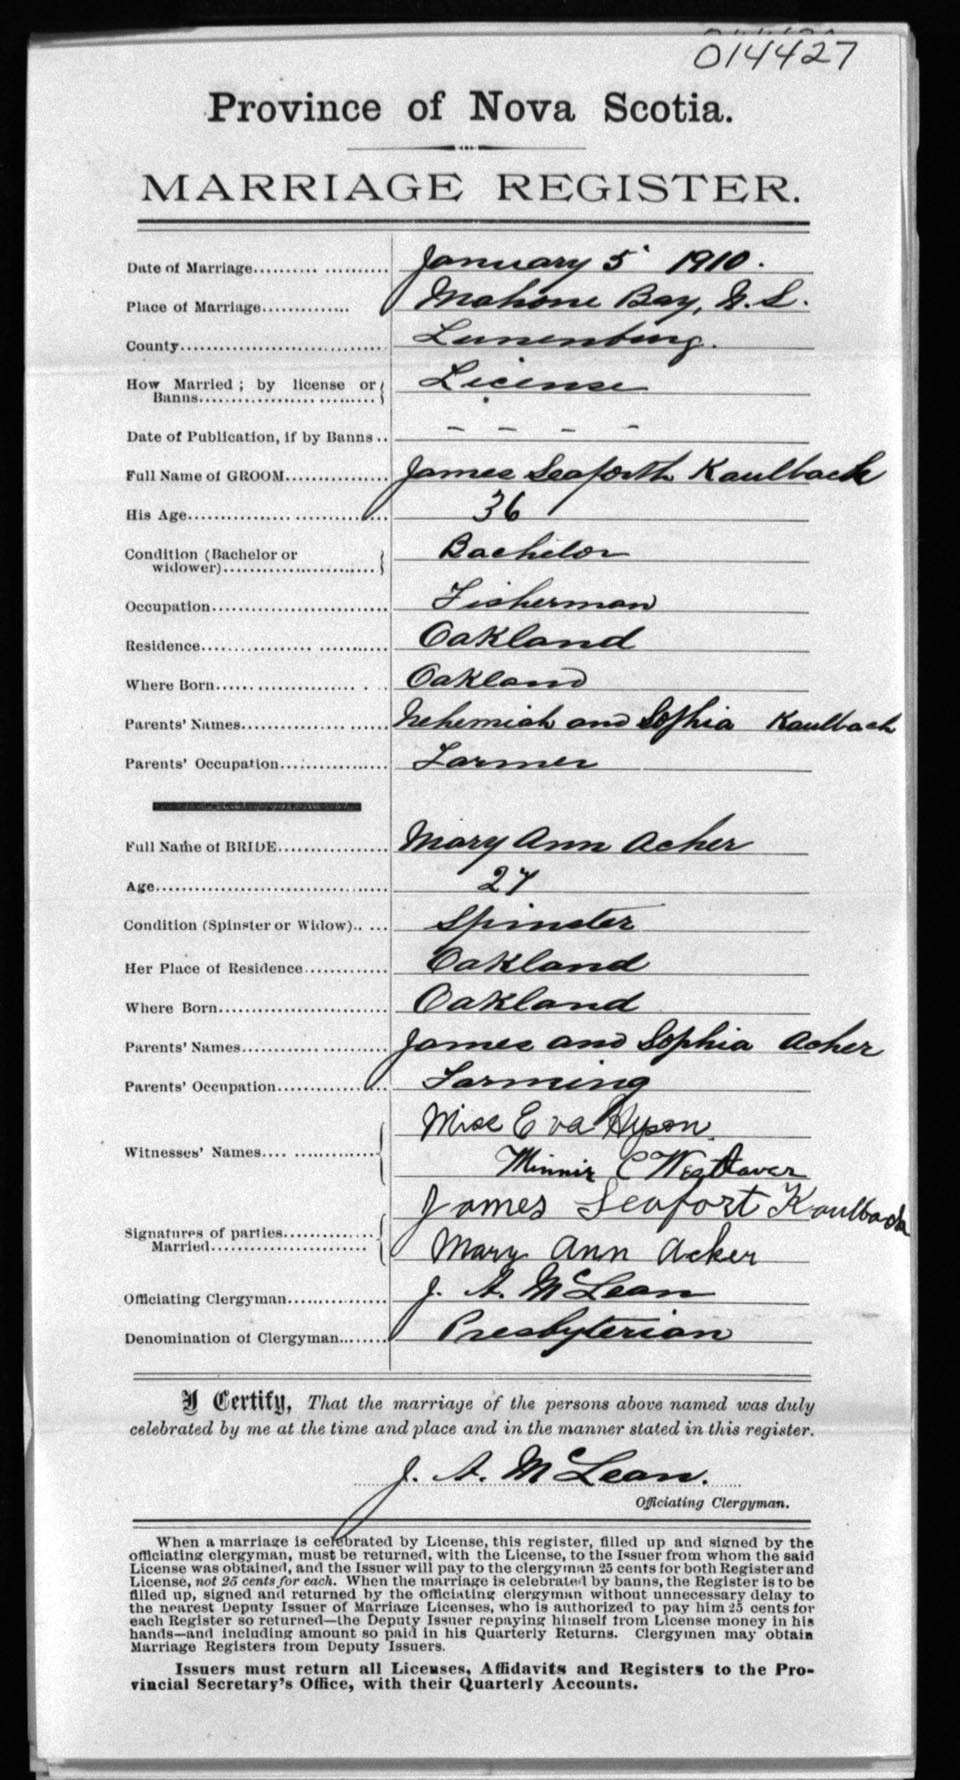 014427
Province of Nova Scotia.
MARRIAGE REGISTER.
Date of Marriage January 5 1910.
Place of Marriage Mahone Bay, N.S.
County Lunenburg.
How Married; by license or Banns License
Date of Publication, if by Banns - - - -
Full Name of GROOM James Seaforth Kaulback
His Age 36
Condition (Bachelor or widower) Bachelor
Occupation Fisherman
Residence Oakland
Where Born Oakland
Parents' Names Nehemiah and Sophia Kaulback
Parents' Occupation Farmer
Full Name of BRIDE Mary Ann Acher
Age 27
Condition (Spinster or Widow) Spinster
Her Place of Residence Oakland
Where Born Oakland
Parents' Names James and Sophia Acher
Parents' Occupation Farming
Witnesses' Names Miss Eva Hyson
Minnie C Westhaver
Signatures of parties Married James Seafort Kaulback
Mary Ann Acker
Officiating Clergyman J. A. McLean
Denomination of Clergyman Presbyterian
I Certify, That the marriage of the persons above named was duly
celebrated by me at the time and place and in the manner stated in this register.
J. A. McLean.
Officiating Clergyman.
When a marriage is celebrated by License, this register, filled up and signed by the
officiating clergyman, must be returned, with the License, to the Issuer from whom the said
License was obtained, and the Issuer will pay to the clergyman 25 cents for both Register and
License, not 25 cents for each. When the marriage is celebrated by banns, the Register is to be
filled up, signed and returned by the officiating clergyman without unnecessary delay to
the nearest Deputy Issuer of Marriage Licenses, who is authorized to pay him 25 cents for
each Register so returned—the Deputy Issuer repaying himself from License money in his
hands—and including amount so paid in his Quarterly Returns. Clergymen may obtain
Marriage Registers from Deputy Issuers.
Issuers must return all Licenses, Affidavits and Registers to the Pro-
vincial Secretary's Office, with their Quarterly Accounts.